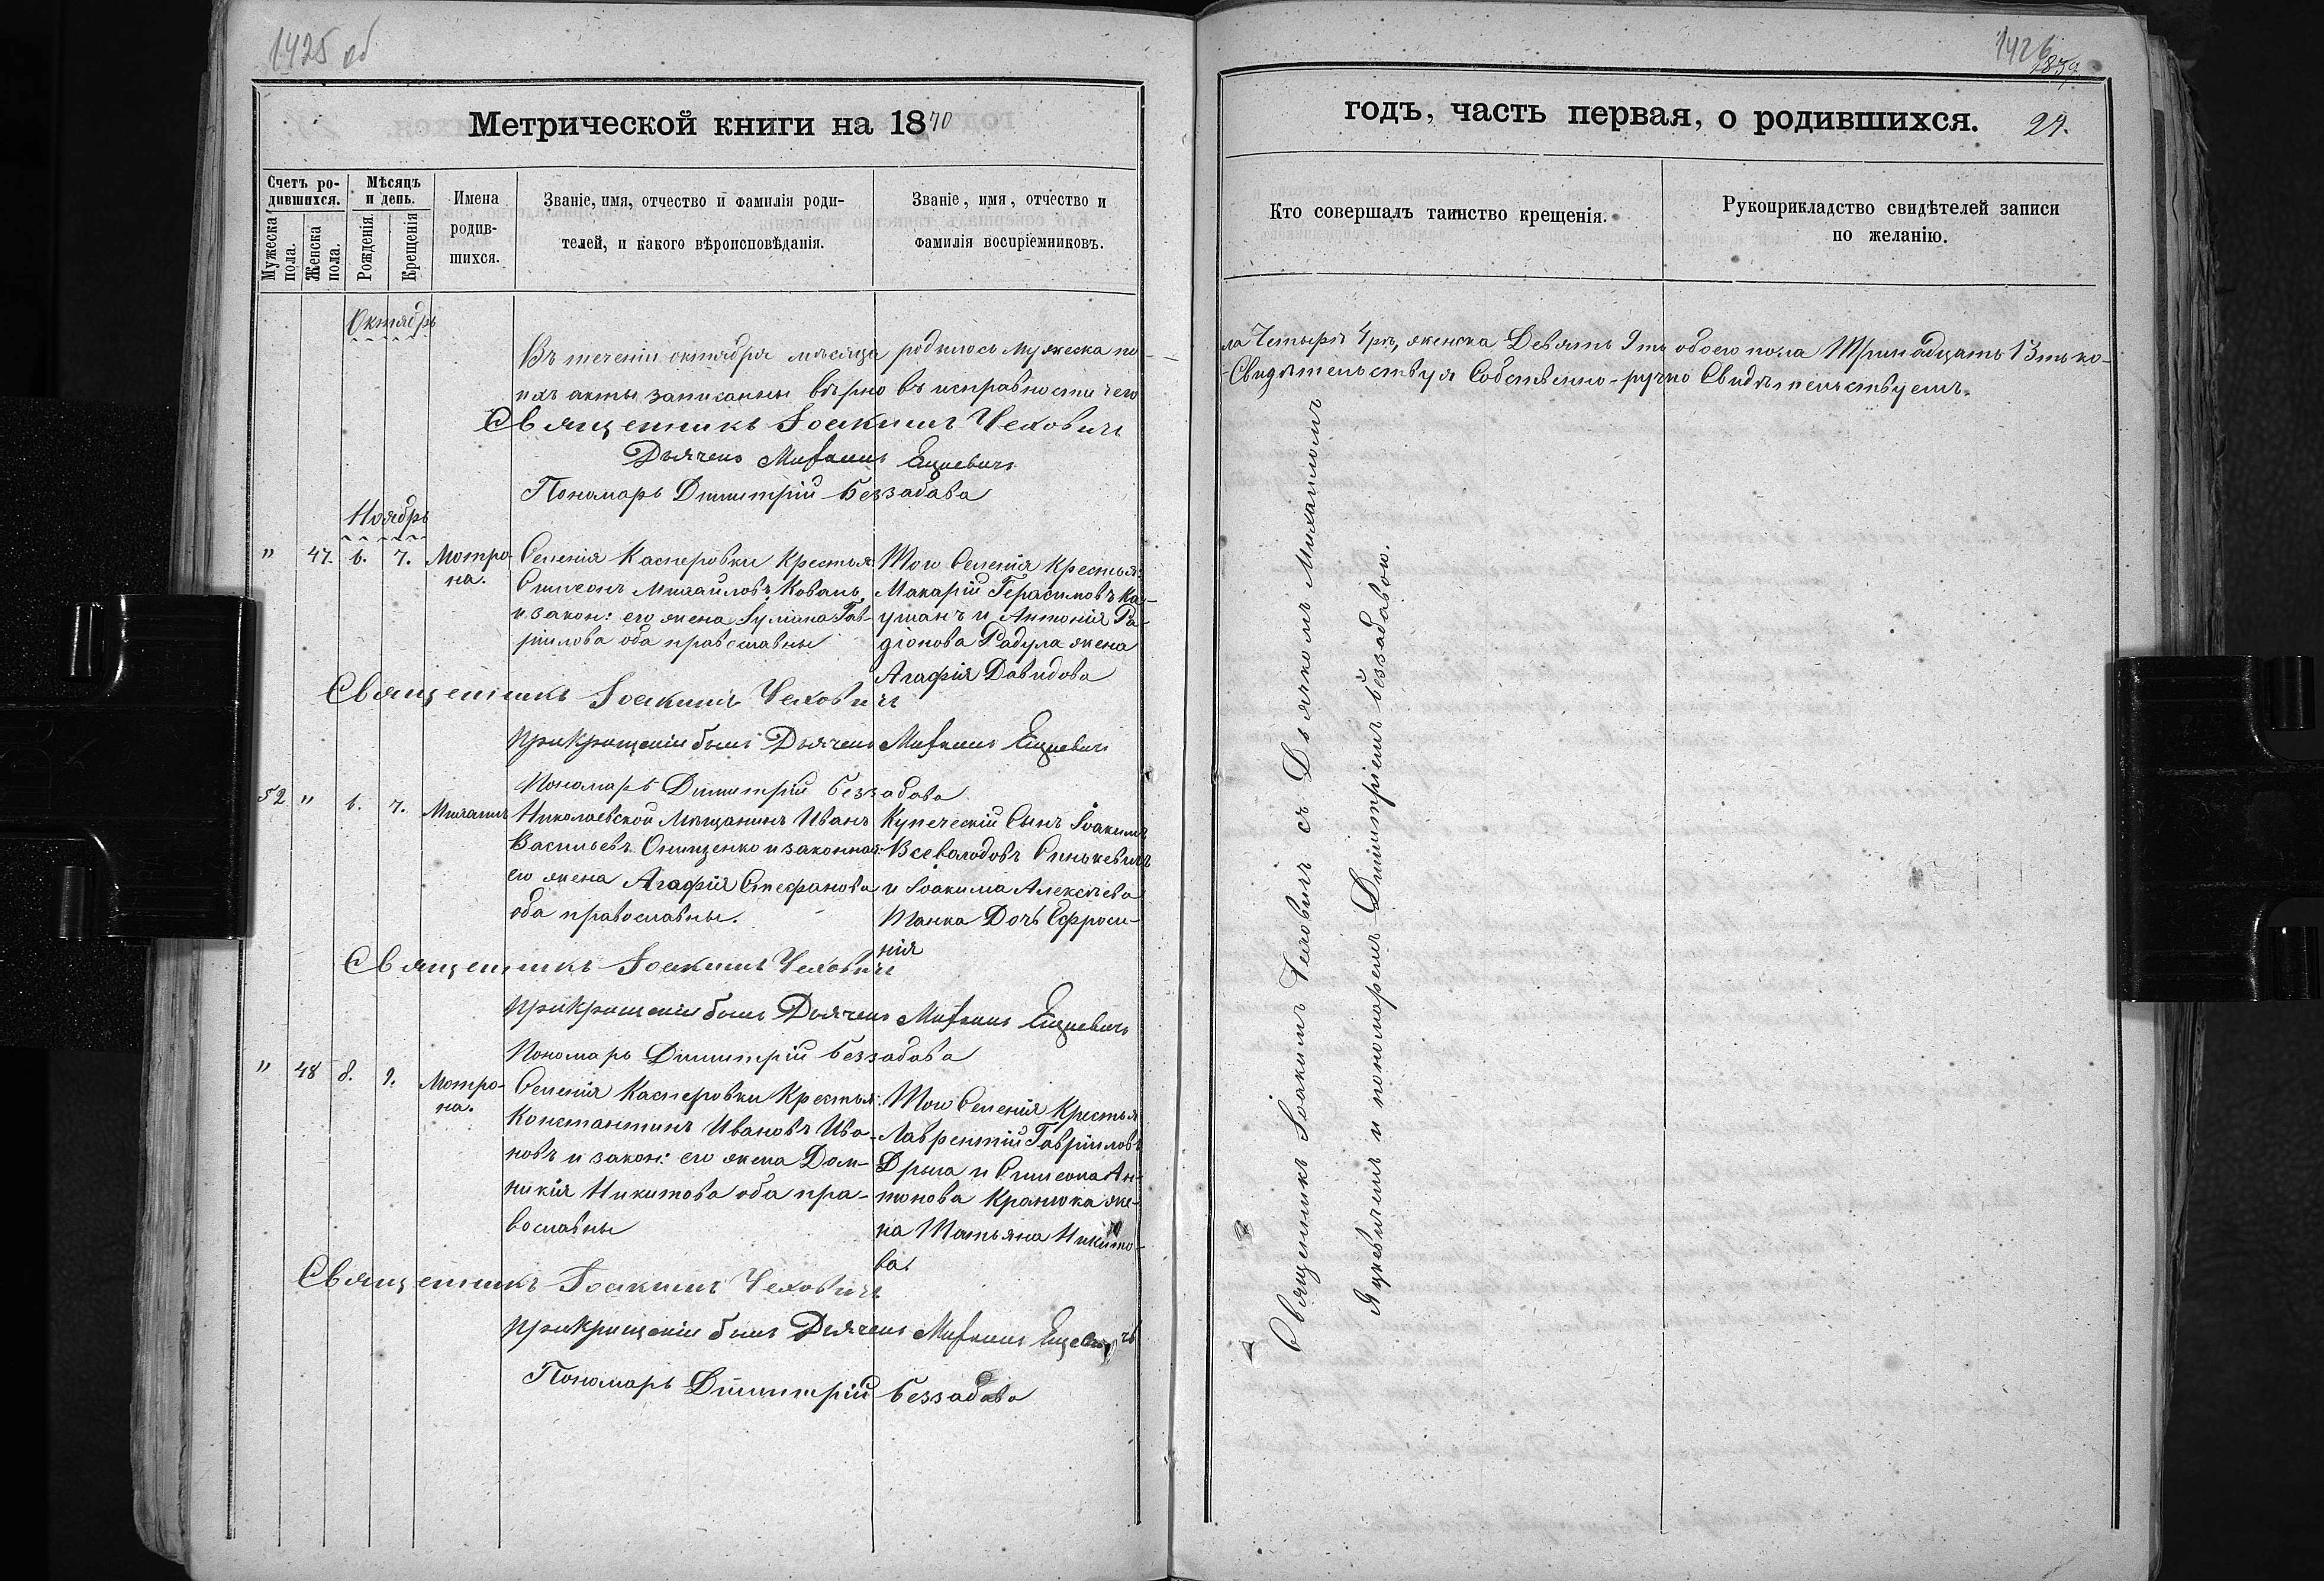 1425 об
Метрической книги на 1870
Счетъ ро-
дившихся.
Мужеска пола.
Женска пола.
Мѣсяцъ
и день.
Рожденія
Крещенія
Имена
родив-
шихся.
Званіе, имя, отчество и фамилія роди-
телей, и какого вѣроисповѣданія.
Званіе, имя, отчество и
фамилія воспріемниковъ.
Октябрь
Въ теченіи октября мѣсяца родилось мужеска по-
ихъ акты записанны вѣрно въ исправности чего
Священникъ Іоакимъ Чехович
Дьячекъ Михаилъ
Пономарь Димитрій Беззабава
Ноябрь
" 47. 6. 7. Мотро-
на.
Селенія Касперовки Крестья:
Симеонъ Михайловъ Коваль
и закон: его жена Іуліана Гав-
ріилова оба православны
Того Селенія Крестья:
Макарій Герасимовъ Ка-
ушанъ и Антонія Ра-
діонова Радула жена
Агафія Давидова
Священникъ Іоакимъ Чеховичъ
При Крещеніи былъ Дьячекъ Михаилъ
Пономарь Димитрій Беззабава
52 " 6. 7. Михаилъ
Николаевской Мѣщанинъ Иванъ
Васильевъ Онищенко и законная
его жена Агафія Стефанова
оба православны.
Купеческій Сынъ Іоакимъ
Всеволодовъ Синькевичъ
и Іоакима Алексѣева
Танка Дочь Ефроси-
нія
Священникъ Іоакимъ Чеховичъ
При Крещеніи былъ Дьячекъ Михаилъ
Пономарь Димитрій Беззабава
" 48 8. 9. Мотро-
на.
Селенія Касперовки Крестья:
Константинъ Ивановъ Ива-
новъ и закон: его жена Дом-
никія Никитова оба пра-
вославны
Того Селенія Крестья
Лаврентій Гавріиловъ
Дрыга и Симеона Ан-
тонова Кранюка же-
на Татьяна Никито-
ва.
Священникъ Іоакимъ Чеховичъ
При Крещеніи былъ Дьячекъ Михаилъ
Пономарь Димитрій Беззабава
1426
годъ, часть первая, о родившихся. 27.
Кто совершалъ таинство крещенія.
Рукоприкладство свидѣтелей записи
по желанію.
ла Четыри 4ри, женска Девять 9ть обоего пола Тринадцать 13ть ко-
Свидѣтельствуя Собственно-ручно Свидѣтельствуемъ.
Священникъ Іоакимъ Чеховичъ съ Дьячкомъ Михаиломъ
Яцкевичемъ и пономаремъ Димитріемъ Беззабавою.